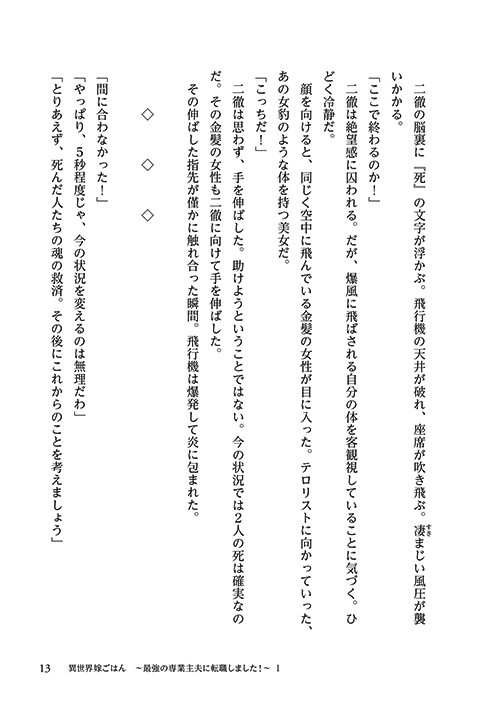 二徹の脳裏に『死』の文字が浮かぶ。飛行機の天井が破れ、座席が吹き飛ぶ。凄まじい風圧が襲
すさ
いかかる。
「ここで終わるのか！」
二徹は絶望感に囚われる。だが、爆風に飛ばされる自分の体を客観視していることに気づく。ひ
どく冷静だ。
顔を向けると、同じく空中に飛んでいる金髪の女性が目に入った。テロリストに向かっていった、
あの女豹のような体を持つ美女だ。
「こっちだ！」
二徹は思わず、手を伸ばした。助けようということではない。今の状況では2人の死は確実なの
だ。その金髪の女性も二徹に向けて手を伸ばした。
その伸ばした指先が僅かに触れ合った瞬間。飛行機は爆発して炎に包まれた。
◇ ◇ ◇
「間に合わなかった！」
「やっぱり、5秒程度じゃ、今の状況を変えるのは無理だわ」
「とりあえず、死んだ人たちの魂の救済。その後にこれからのことを考えましょう」
13 異世界嫁ごはん ～最強の専業主夫に転職しました！～ 1